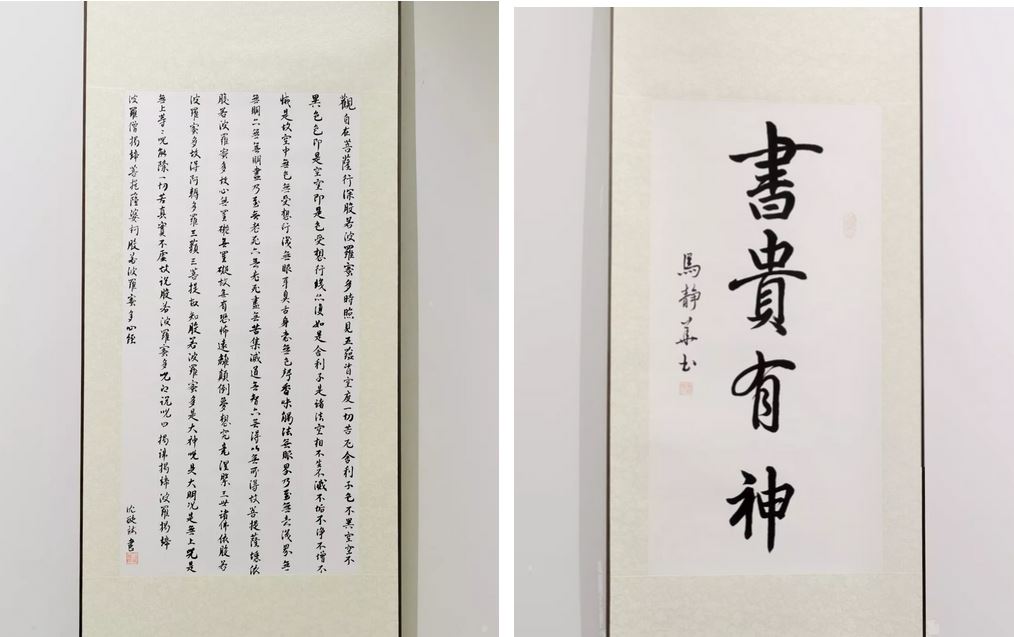 觀自在菩薩行深般若波羅蜜多時照見五蘊皆空度一切苦厄舍利子色不異空空不
異色色即是空空即是色受想行識亦復如是舍利子是諸法空相不生不滅不垢不淨不增不
減是故空中無色無受想行識無眼耳鼻舌身意無色聲香味觸法無眼界乃至無意識界無
無明亦無無明盡乃至無老死亦無老死盡無苦集滅道無智亦無得以無所得故菩提薩埵依
般若波羅蜜多故心無罣礙無罣礙故無有恐怖遠離顛倒夢想究竟涅槃三世諸佛依般若
波羅蜜多故得阿耨多羅三藐三菩提故知般若波羅蜜多是大神咒是大明咒是無上咒是
無上等〻咒能除一切苦真實不虛故說般若波羅蜜多咒即說咒曰揭諦揭諦波羅揭諦
波羅僧揭諦菩提薩婆訶般若波羅蜜多心經
書
書貴有神
馬靜華书